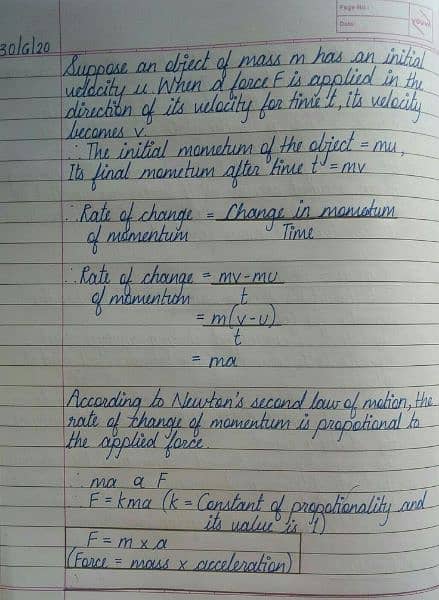 Page No.:
Date:
YOUVA
30/6/20
Suppose an object of mass m has an initial
velocity u. When a force F is applied in the
direction of its velocity for time t, its velocity
becomes v.
∴ The initial mometum of the object = mu,
Its final mometum after time t = mv
∴ Rate of change = Change in momatum
of momentum Time
∴ Rate of change = mv-mu
of momentum t
= m(v-u)
t
= ma
According to Newton's second law of motion, the
rate of change of momentum is propotional to
the applied force.
∴ ma α F
∴ F = kma (k = Constant of propotionality and
its value is 1)
F = m x a
(Force = mass x acceleration)